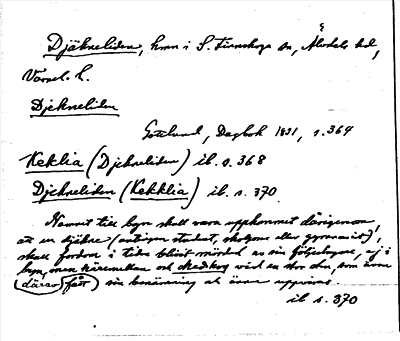 Djäkneliden, hmn i S. Finnskoga sn, Älvdals hd,
Värml. l.
Djekneliden
Gottlund, Dagbok 1821, s. 367
Kekklia (Djekneliden) ib. s. 368
Djekneliden (Kekklia) ib. s. 370
Namnet till byn skall vara uppkommet därigenom,
att en djekne (antingen student, skolgosse eller gymnasist),
skall fordom i tiden blivit mördad av sin följeslagare, ej i
byn, utan närmre och vid en stor sten, som även
därav fått sin benämning att även uppvisas.
ib s. 370